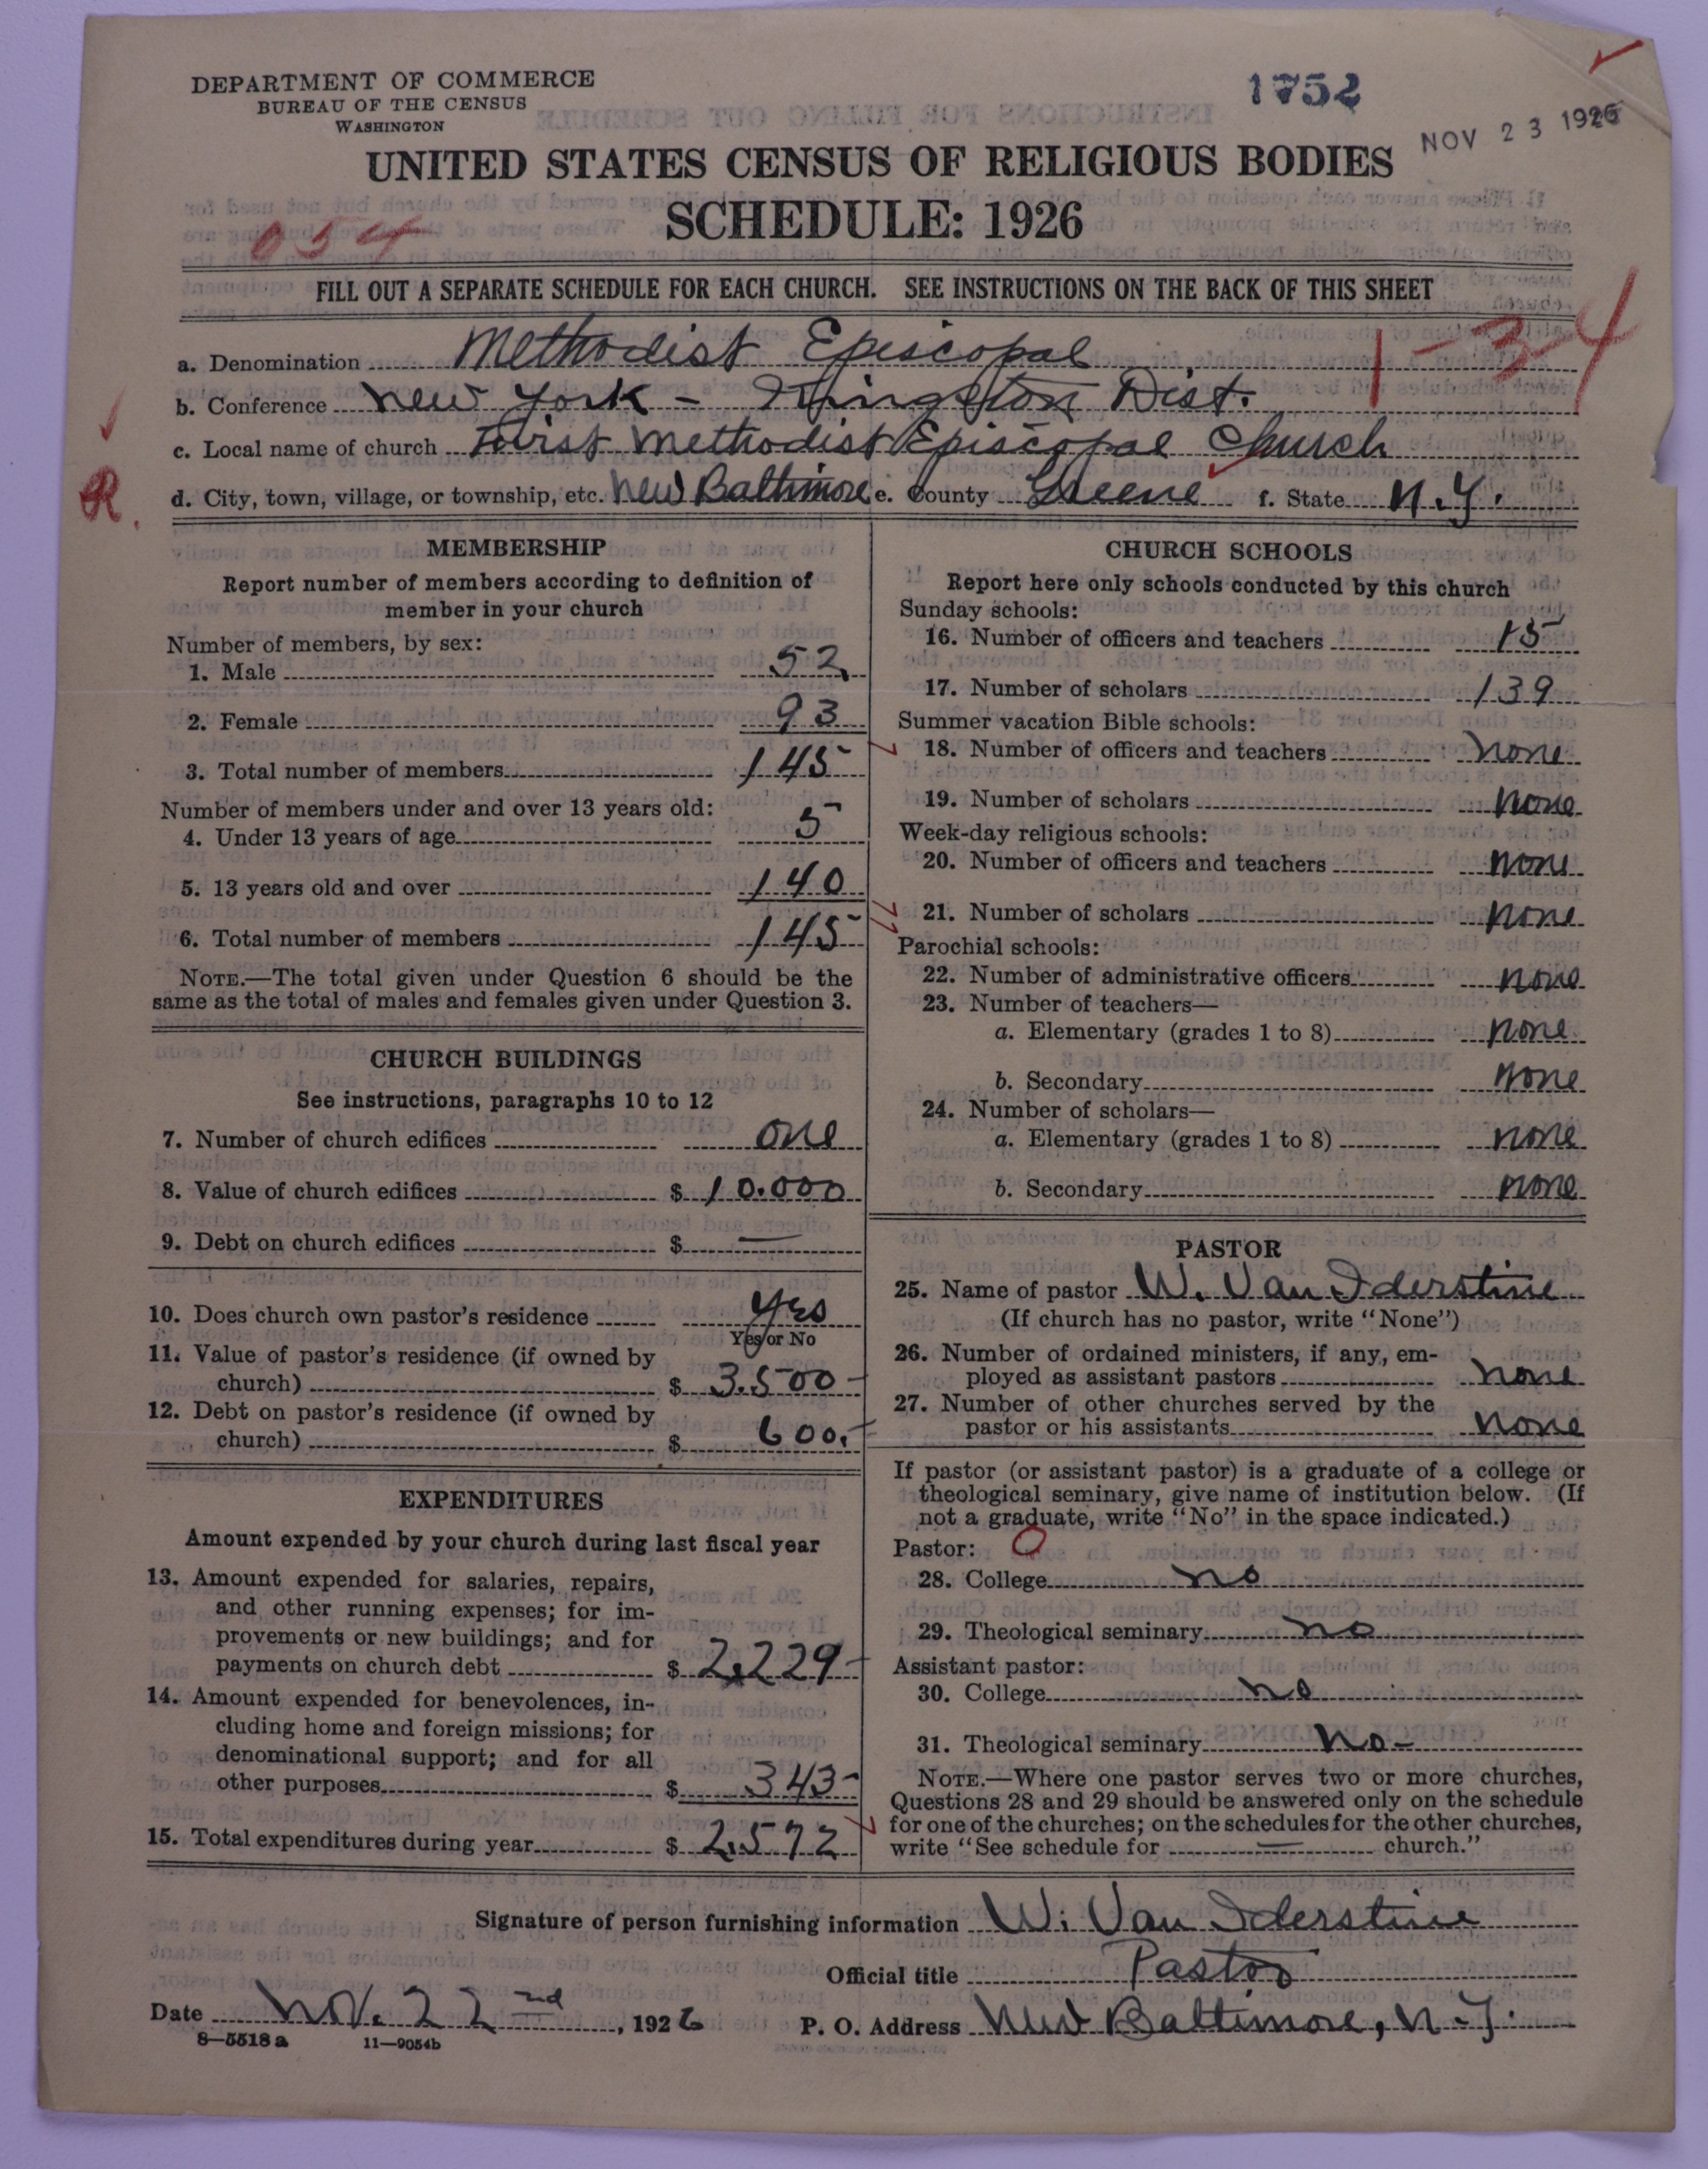 DEPARTMENT OF COMMERCE
BUREAU OF THE CENSUS
WASHINGTON
1752
NOV 23 1926
UNITED STATES CENSUS OF RELIGIOUS BODIES
SCHEDULE: 1926
054
FILL OUT A SEPARATE SCHEDULE FOR EACH CHURCH. SEE INSTRUCTIONS ON THE BACK OF THIS SHEET
1-34
a. Denomination Methodist Episcopal
b. Conference New York - Kingston Dist.
c. Local name of church First Methodist Episcopal Church
R.
d. City, town, village, or township, etc. New Baltimore e. County Greene f. State N.Y.
MEMBERSHIP
Report number of members according to definition of
member in your church
Number of members, by sex:
1. Male 52
2. Female 93
3. Total number of members 145
Number of members under and over 13 years old:
4. Under 13 years of age 5
5. 13 years old and over 140
6. Total number of members 145
NOTE.—The total given under Question 6 should be the
same as the total of males and females given under Question 3.
CHURCH BUILDINGS
See instructions, paragraphs 10 to 12
7. Number of church edifices one
8. Value of church edifices $ 10.000
9. Debt on church edifices $ —
10. Does church own pastor's residence Yes
Yes or No
11. Value of pastor's residence (if owned by
church) $ 3.500-
12. Debt on pastor's residence (if owned by
church) $ 600.-
EXPENDITURES
Amount expended by your church during last fiscal year
13. Amount expended for salaries, repairs,
and other running expenses; for im-
provements or new buildings; and for
payments on church debt $ 2,229-
14. Amount expended for benevolences, in-
cluding home and foreign missions; for
denominational support; and for all
other purposes $ 343-
15. Total expenditures during year $ 2.572
CHURCH SCHOOLS
Report here only schools conducted by this church
Sunday schools:
16. Number of officers and teachers 15
17. Number of scholars 139
Summer vacation Bible schools:
18. Number of officers and teachers none
19. Number of scholars none
Week-day religious schools:
20. Number of officers and teachers none
21. Number of scholars none
Parochial schools:
22. Number of administrative officers none
23. Number of teachers—
a. Elementary (grades 1 to 8) none
b. Secondary none
24. Number of scholars—
a. Elementary (grades 1 to 8) none
b. Secondary none
PASTOR
25. Name of pastor W. Van Iderstine
(If church has no pastor, write "None")
26. Number of ordained ministers, if any, em-
ployed as assistant pastors none
27. Number of other churches served by the
pastor or his assistants none
If pastor (or assistant pastor) is a graduate of a college or
theological seminary, give name of institution below. (If
not a graduate, write "No" in the space indicated.)
Pastor: O
28. College no
29. Theological seminary no
Assistant pastor:
30. College no
31. Theological seminary No-
NOTE.—Where one pastor serves two or more churches,
Questions 28 and 29 should be answered only on the schedule
for one of the churches; on the schedules for the other churches,
write "See schedule for — church."
Signature of person furnishing information W. Van Iderstine
Official title Pastor
Date Nov. 22nd, 1926
P. O. Address New Baltimore, N.Y.
8—5518 a 11—9054b